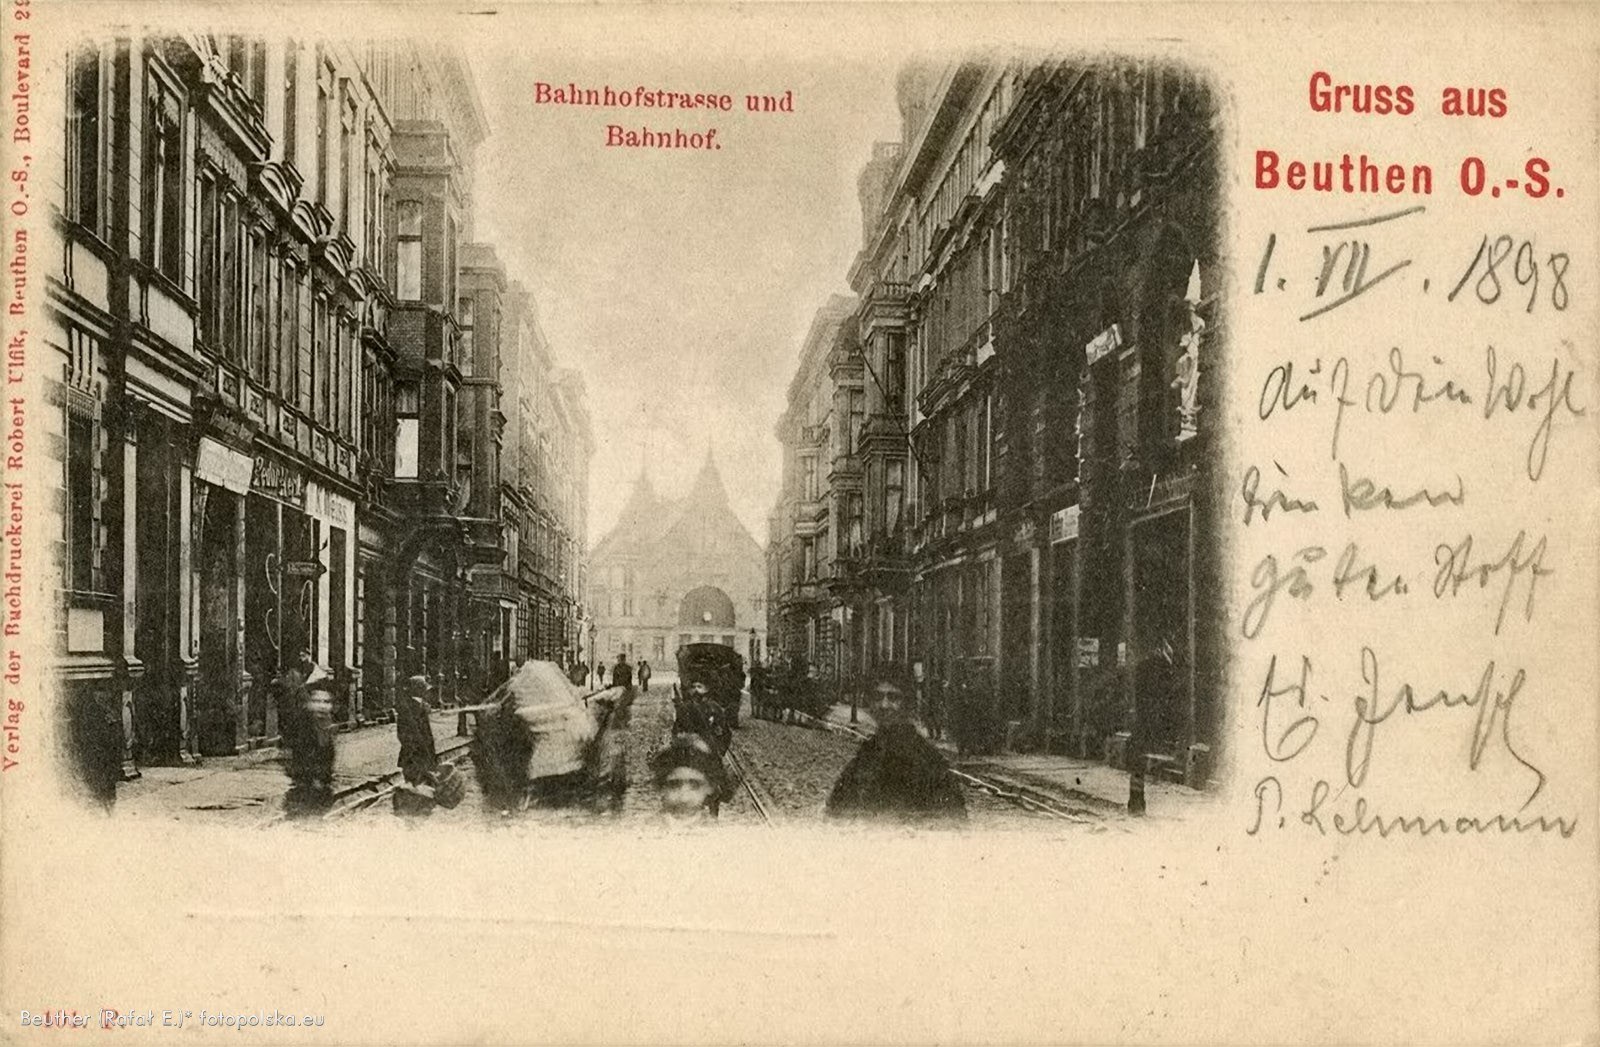 Bahnhofstrasse und
Bahnhof.
Gruss aus
Beuthen O.-S.
1. VII. 1898
Auf Dein Wohl
trinken
guten Stoff
P. Lehmann
Verlag der Buchdruckerei Robert Ulfik, Beuthen O.-S., Boulevard 29
Beuther (Rafał E.)* fotopolska.eu